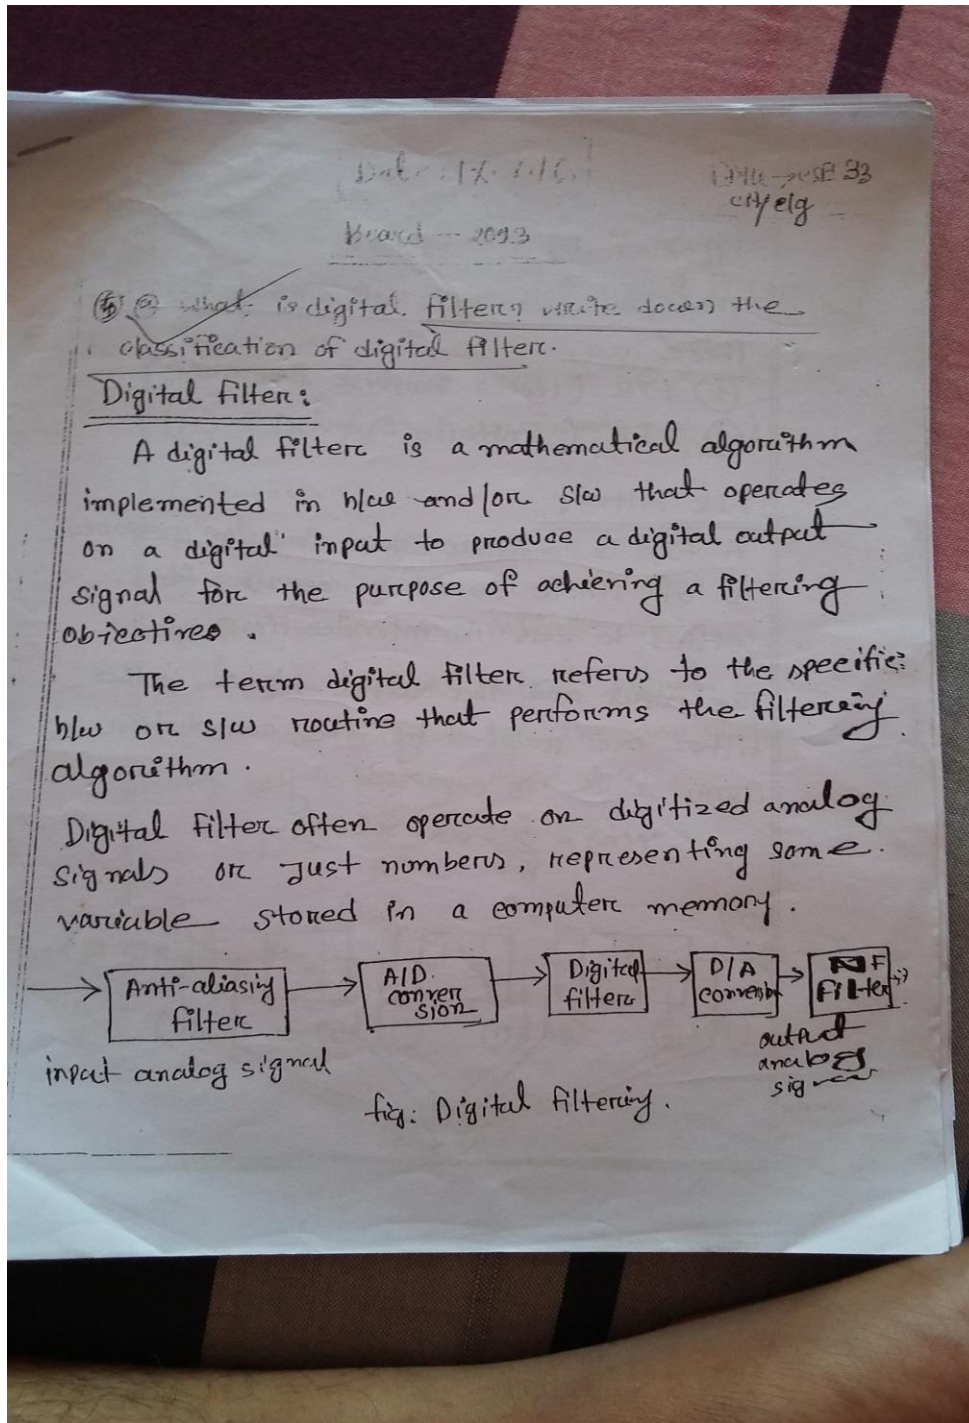 33
Board - 2013
(a) what is digital filter? write down the
classification of digital filter.
Digital filter:
A digital filter is a mathematical algorithm
implemented in h/w and/or s/w that operates
on a digital input to produce a digital output
signal for the purpose of achiering a filtering
objectires.
The term digital filter refers to the specific
h/w or s/w routine that performs the filtering
algorithm.
Digital filter often operate on digitized analog
signals or Just numbers, representing some
variable stored in a computer memory.
Anti-aliasing
filter
A/D
conver
sion
Digital
filter
D/A
filter
input analog signal
output
analog
fig: Digital filtering.